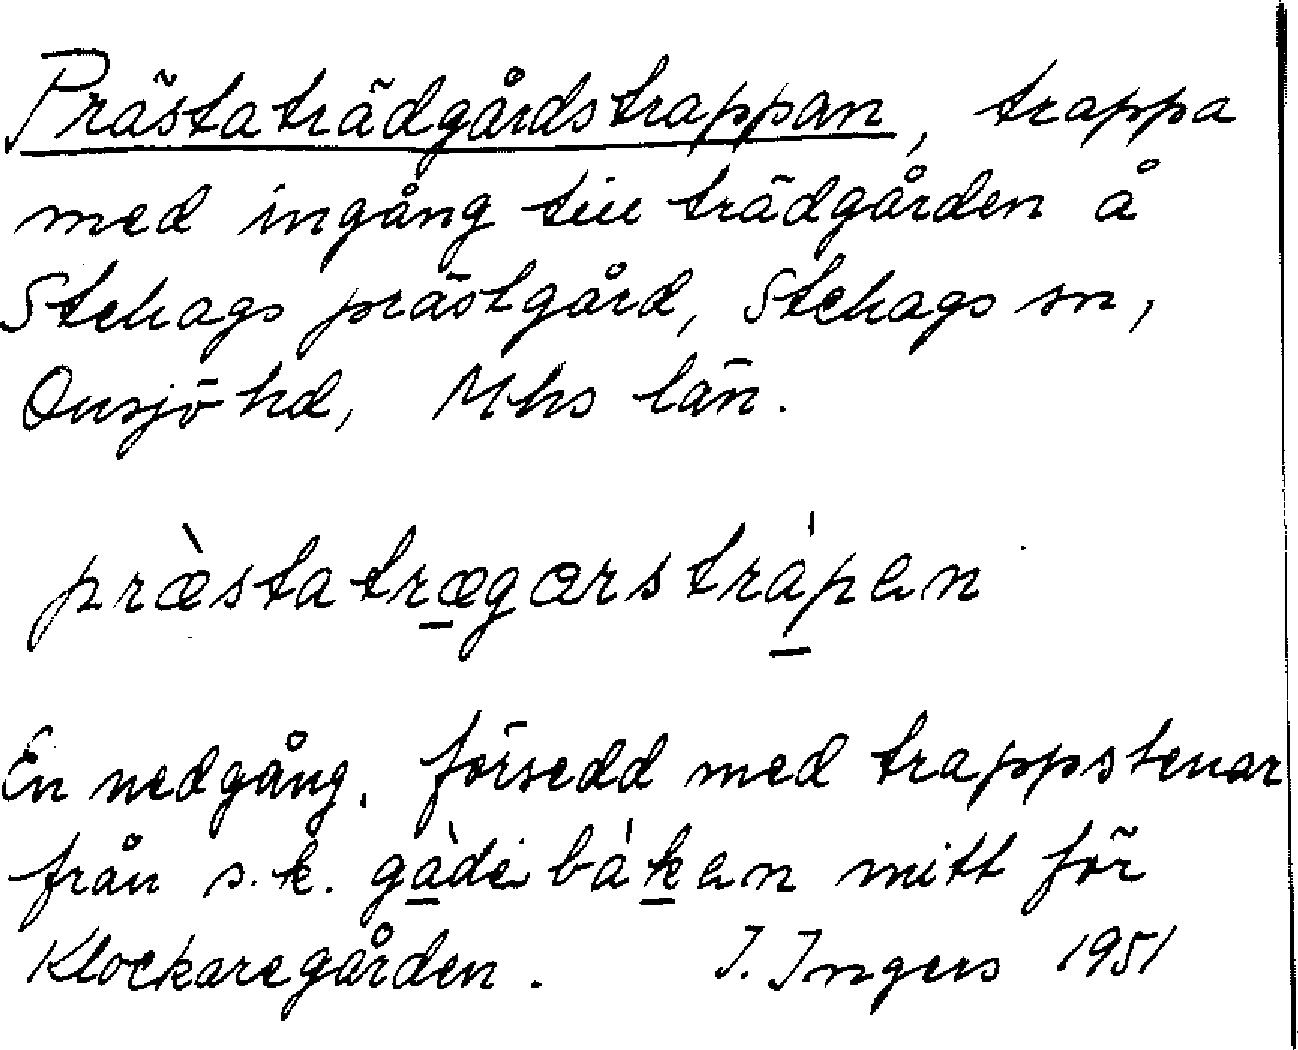 Prästaträdgårdstrappan, trappa
med ingång till trädgården å
Stehags prästgård, Stehags sn,
Onsjö hd, Mhs län.
prὰstatrægarstrápan
En nedgång, försedd med trappstenar
från s.k. gàdebákan mitt för
Klockaregården. I. Ingers 1951